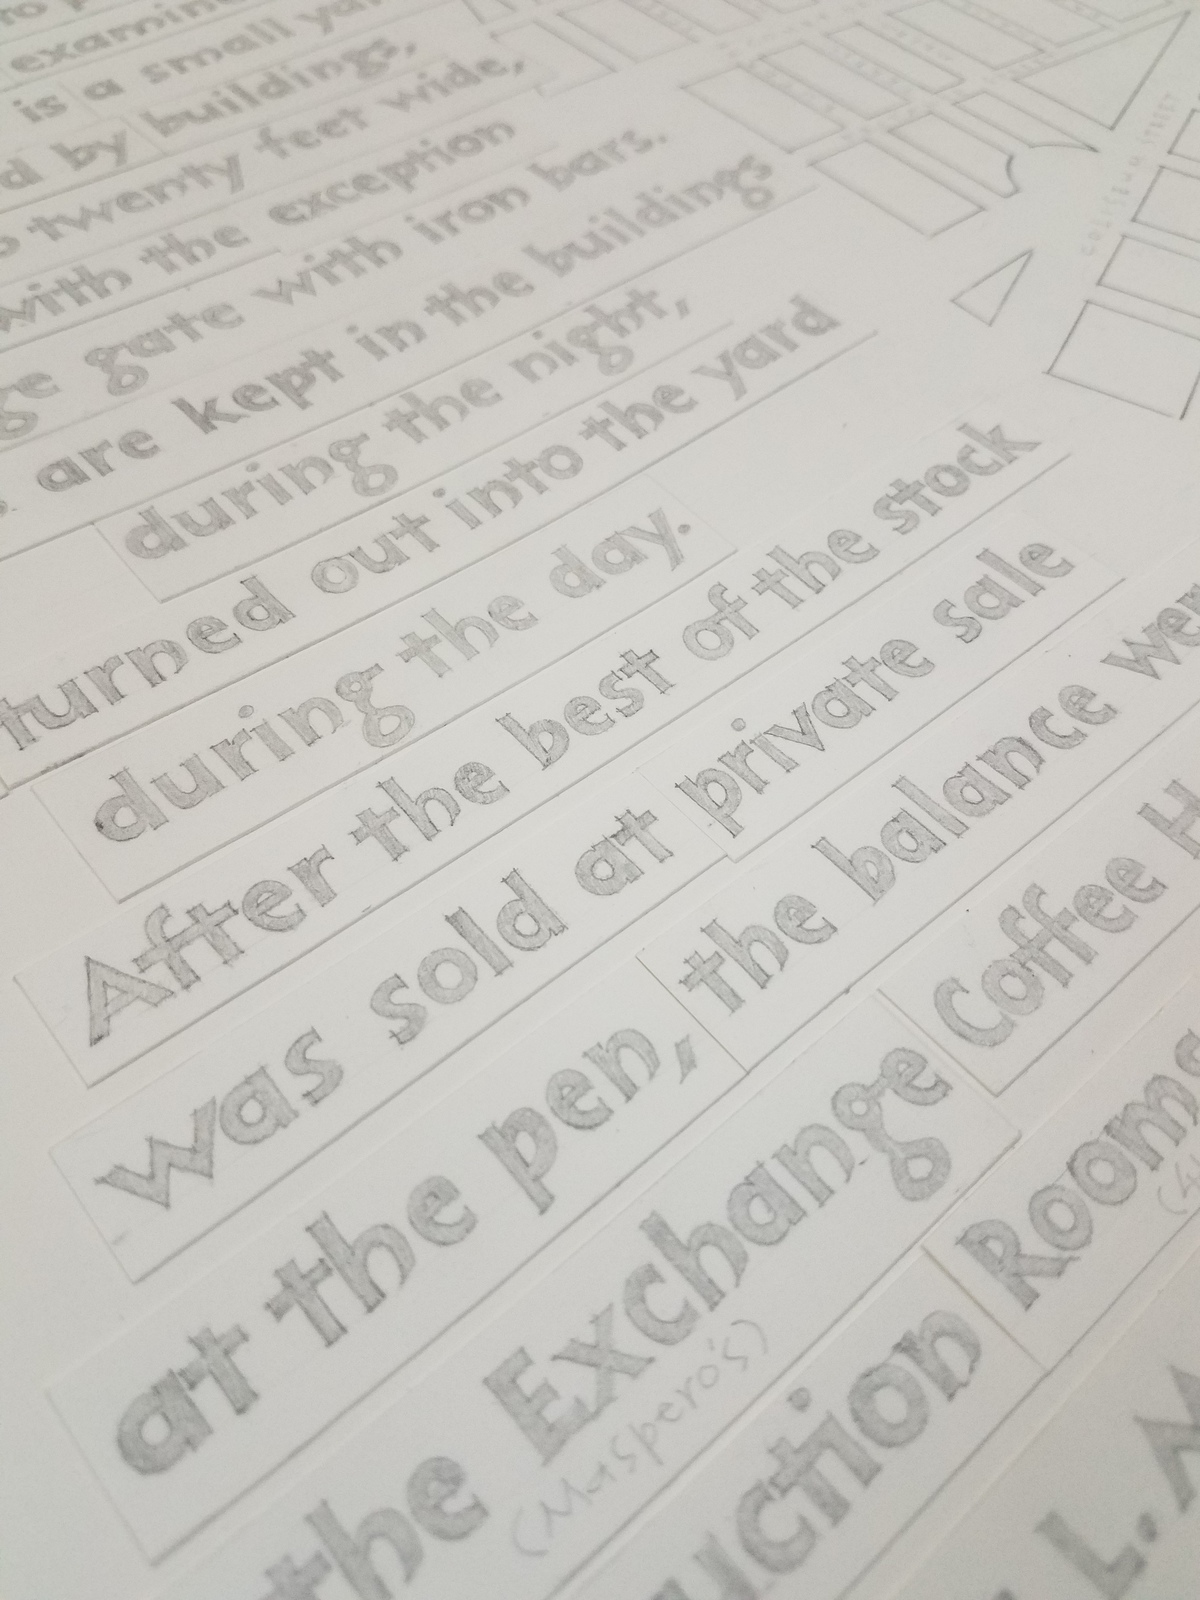 examine
is a small
by buildings,
twenty feet wide,
with the exception
gate with iron bars.
are kept in the buildings
during the night,
turned out into the yard
during the day.
After the best of the stock
was sold at private sale
at the pen, the balance
the Exchange Coffee
(Maspero's)
Rooms
L.